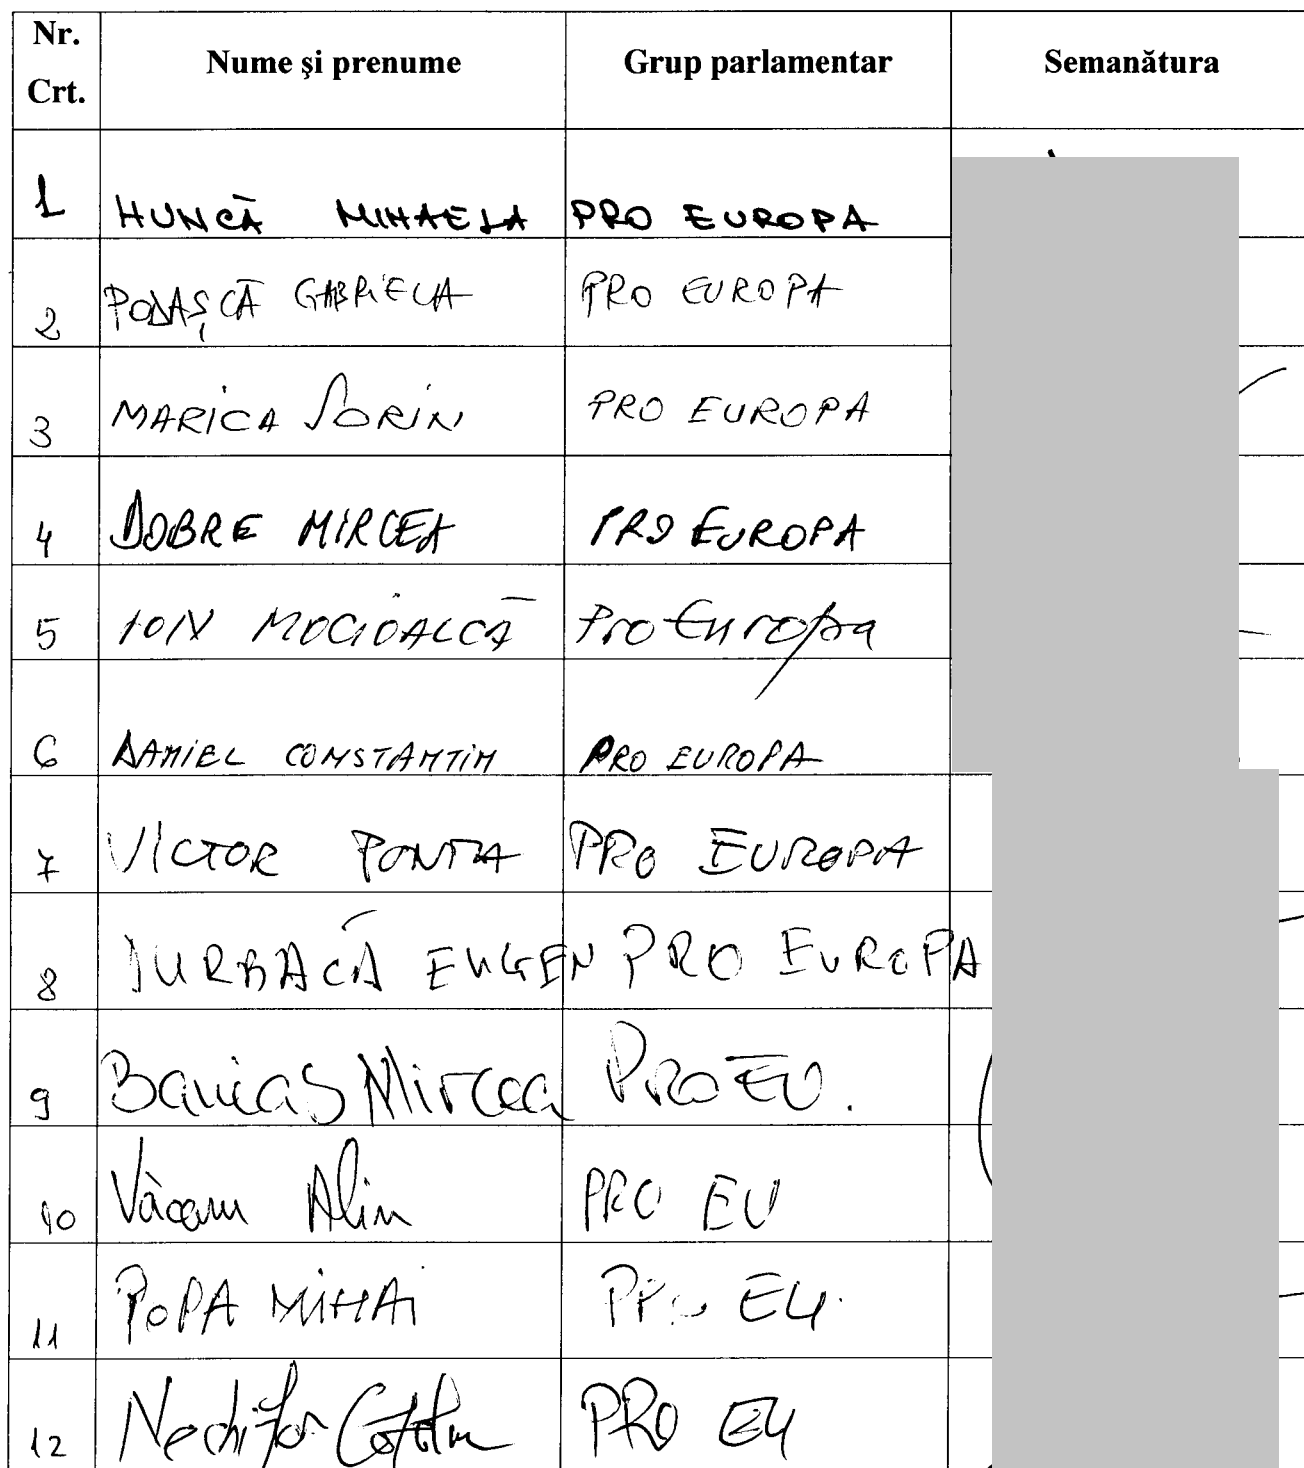 Nr. Crt. Nume şi prenume Grup parlamentar Semanătura
1 HUNCĂ MIHAELA PRO EUROPA
2 PODAŞCĂ GABRIELA PRO EUROPA
3 MARICA SORIN PRO EUROPA
4 DOBRE MIRCEA PRO EUROPA
5 ION MOCIOALCĂ Pro Europa
6 DANIEL CONSTANTIN PRO EUROPA
7 VICTOR PONTA PRO EUROPA
8 DURBACĂ EUGEN PRO EUROPA
9 Banias Mircea PRO EU.
10 Văcaru Alin PRO EU
11 POPA MIHAI PRO EU.
12 Nechifor Cătălin PRO EU